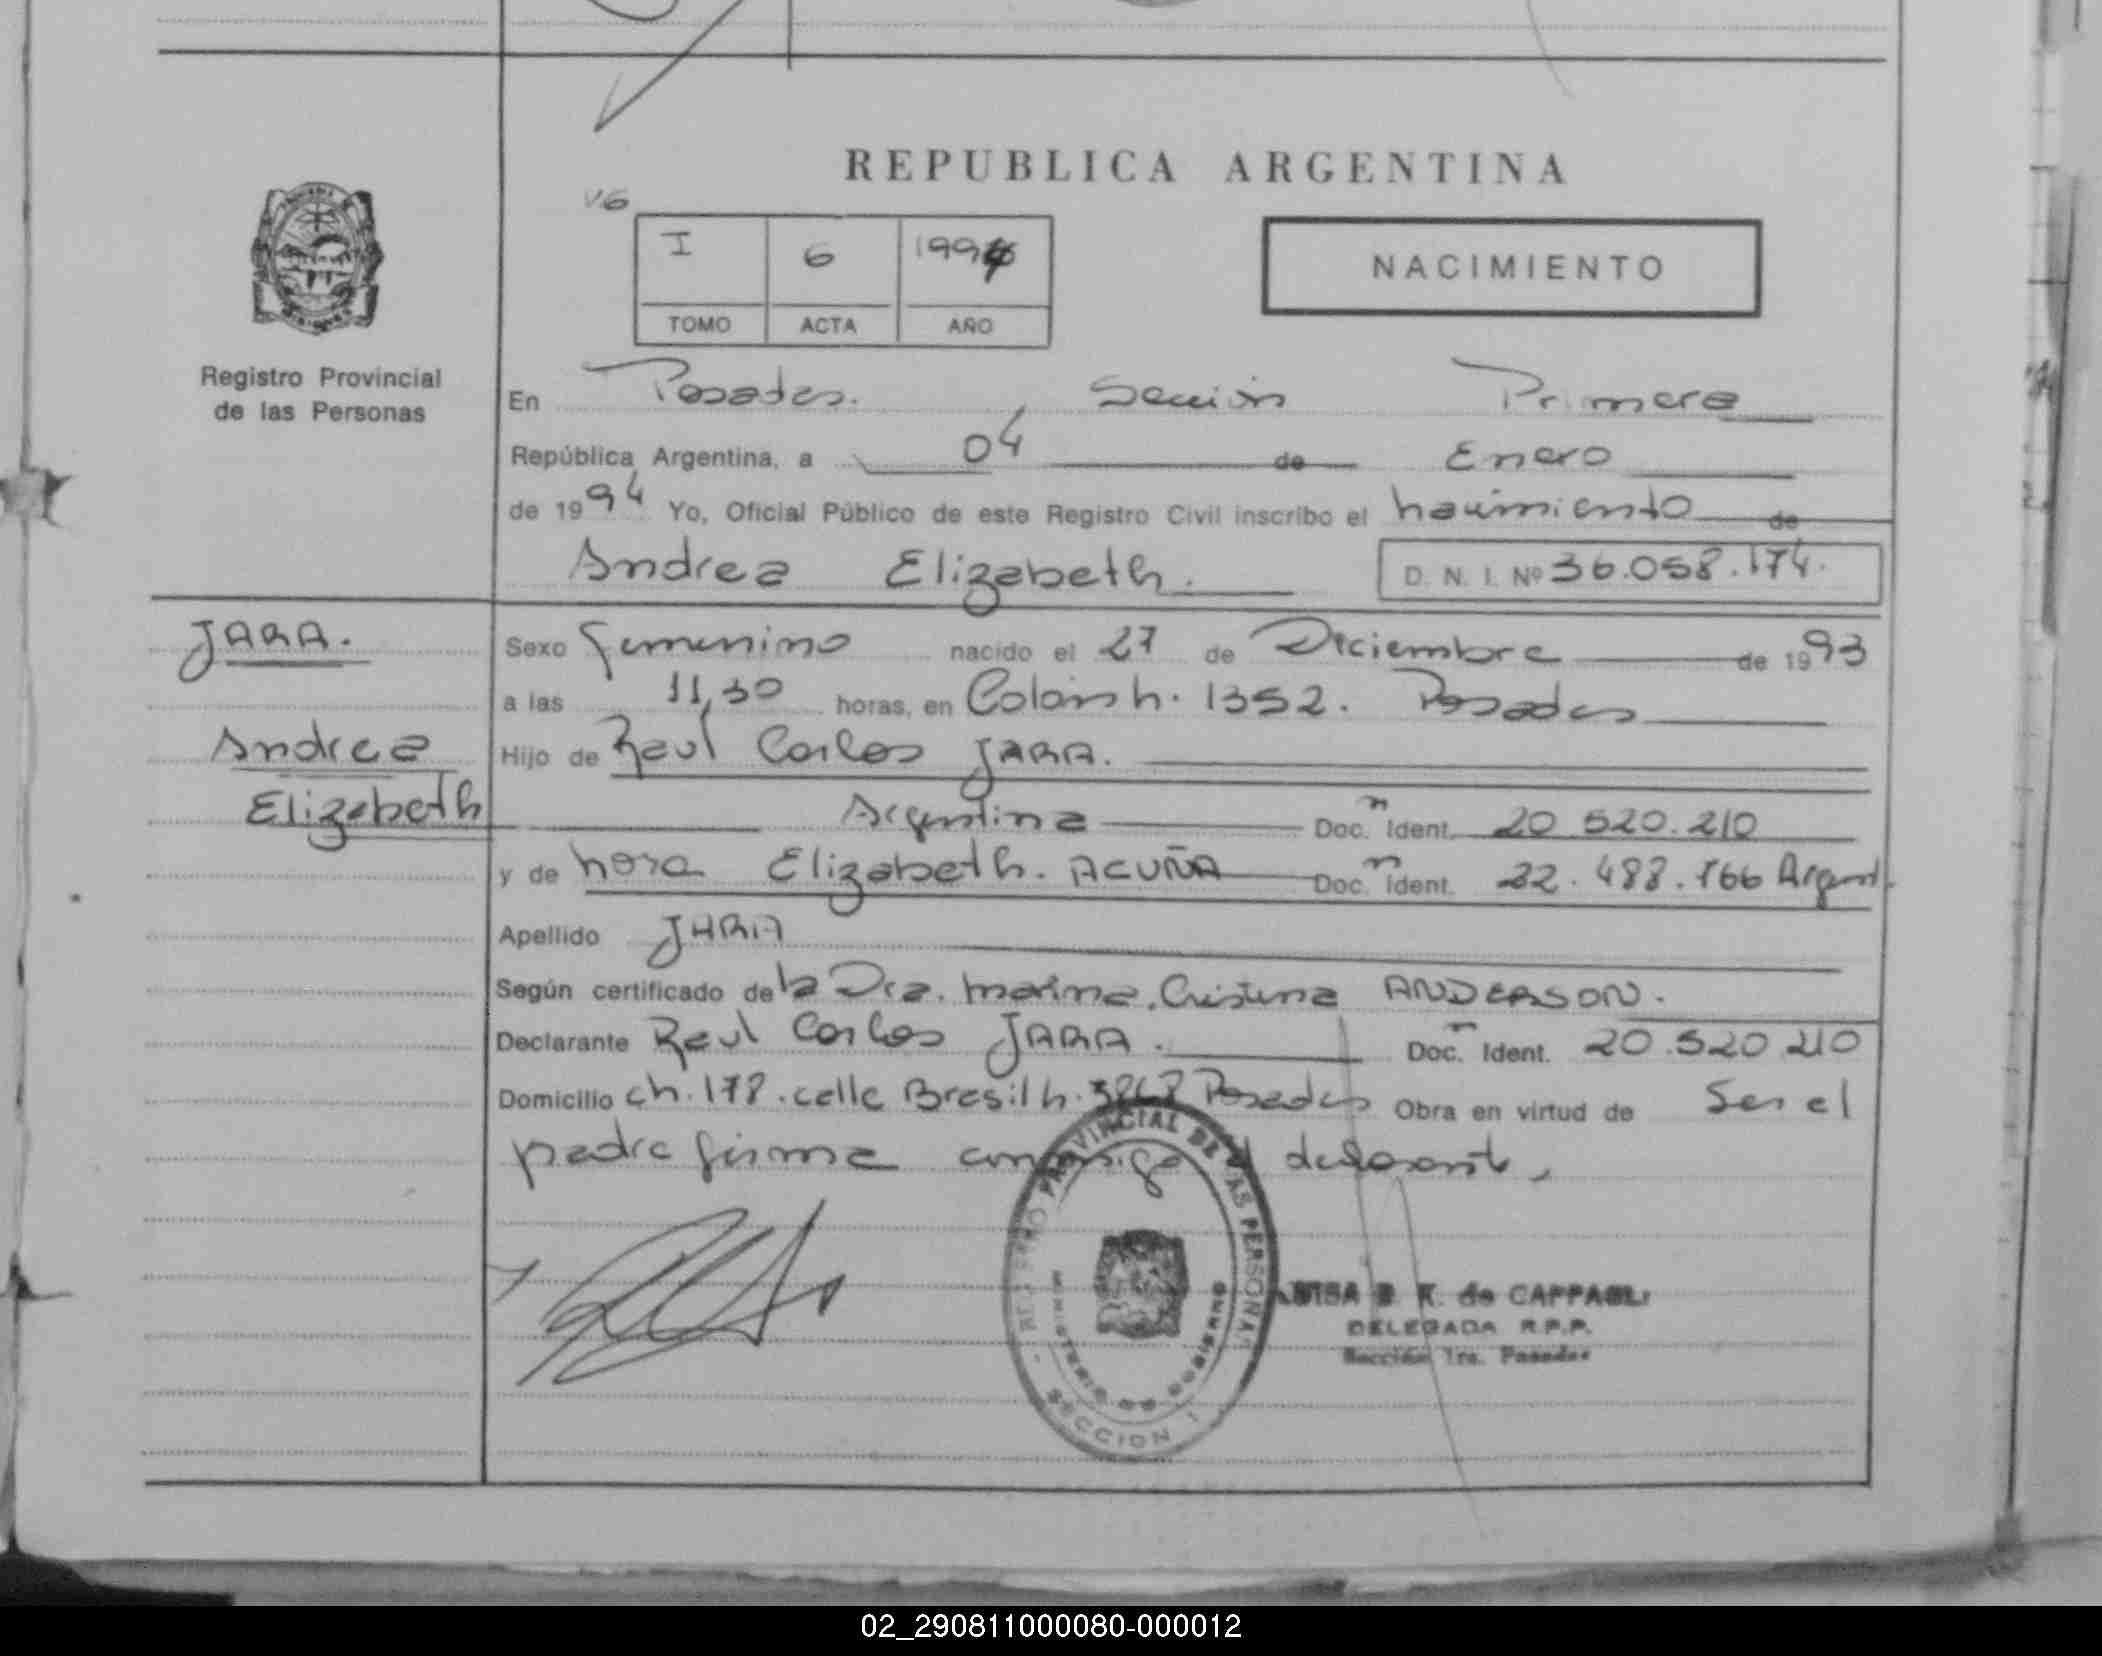 REPUBLICA ARGENTINA
V6
I 6 1994
TOMO ACTA AÑO
NACIMIENTO
Registro Provincial
de las Personas
En Posadas. Sección Primera
República Argentina, a 04 de Enero
de 1994 Yo, Oficial Público de este Registro Civil inscribo el nacimiento de
Andrea Elizabeth. D. N. I. Nº 36.058.174.
JARA.
Andrea
Elizabeth
Sexo femenino nacido el 27 de Diciembre de 1993
a las 11,30 horas, en Colón h. 1352. Posadas
Hijo de Raul Carlos JARA.
Argentina Doc. n Ident. 20 520.210
y de Nora Elizabeth. ACUÑA Doc. n Ident. 22.488.166 Argent.
Apellido JARA
Según certificado de la Dra. Marina Cristina ANDERSON.
Declarante Raul Carlos JARA. Doc. n Ident. 20.520 210
Domicilio ch. 178. calle Brasil h. Posadas Obra en virtud de Ser el
padre firma conmigo el declarante,
REGISTRO PROVINCIAL DE LAS PERSONAS
MINISTERIO DE GOBIERNO
SECCION 1
de CAPPAGLI
DELEGADA R.P.P.
Sección 1ra. Posadas
02_290811000080-000012